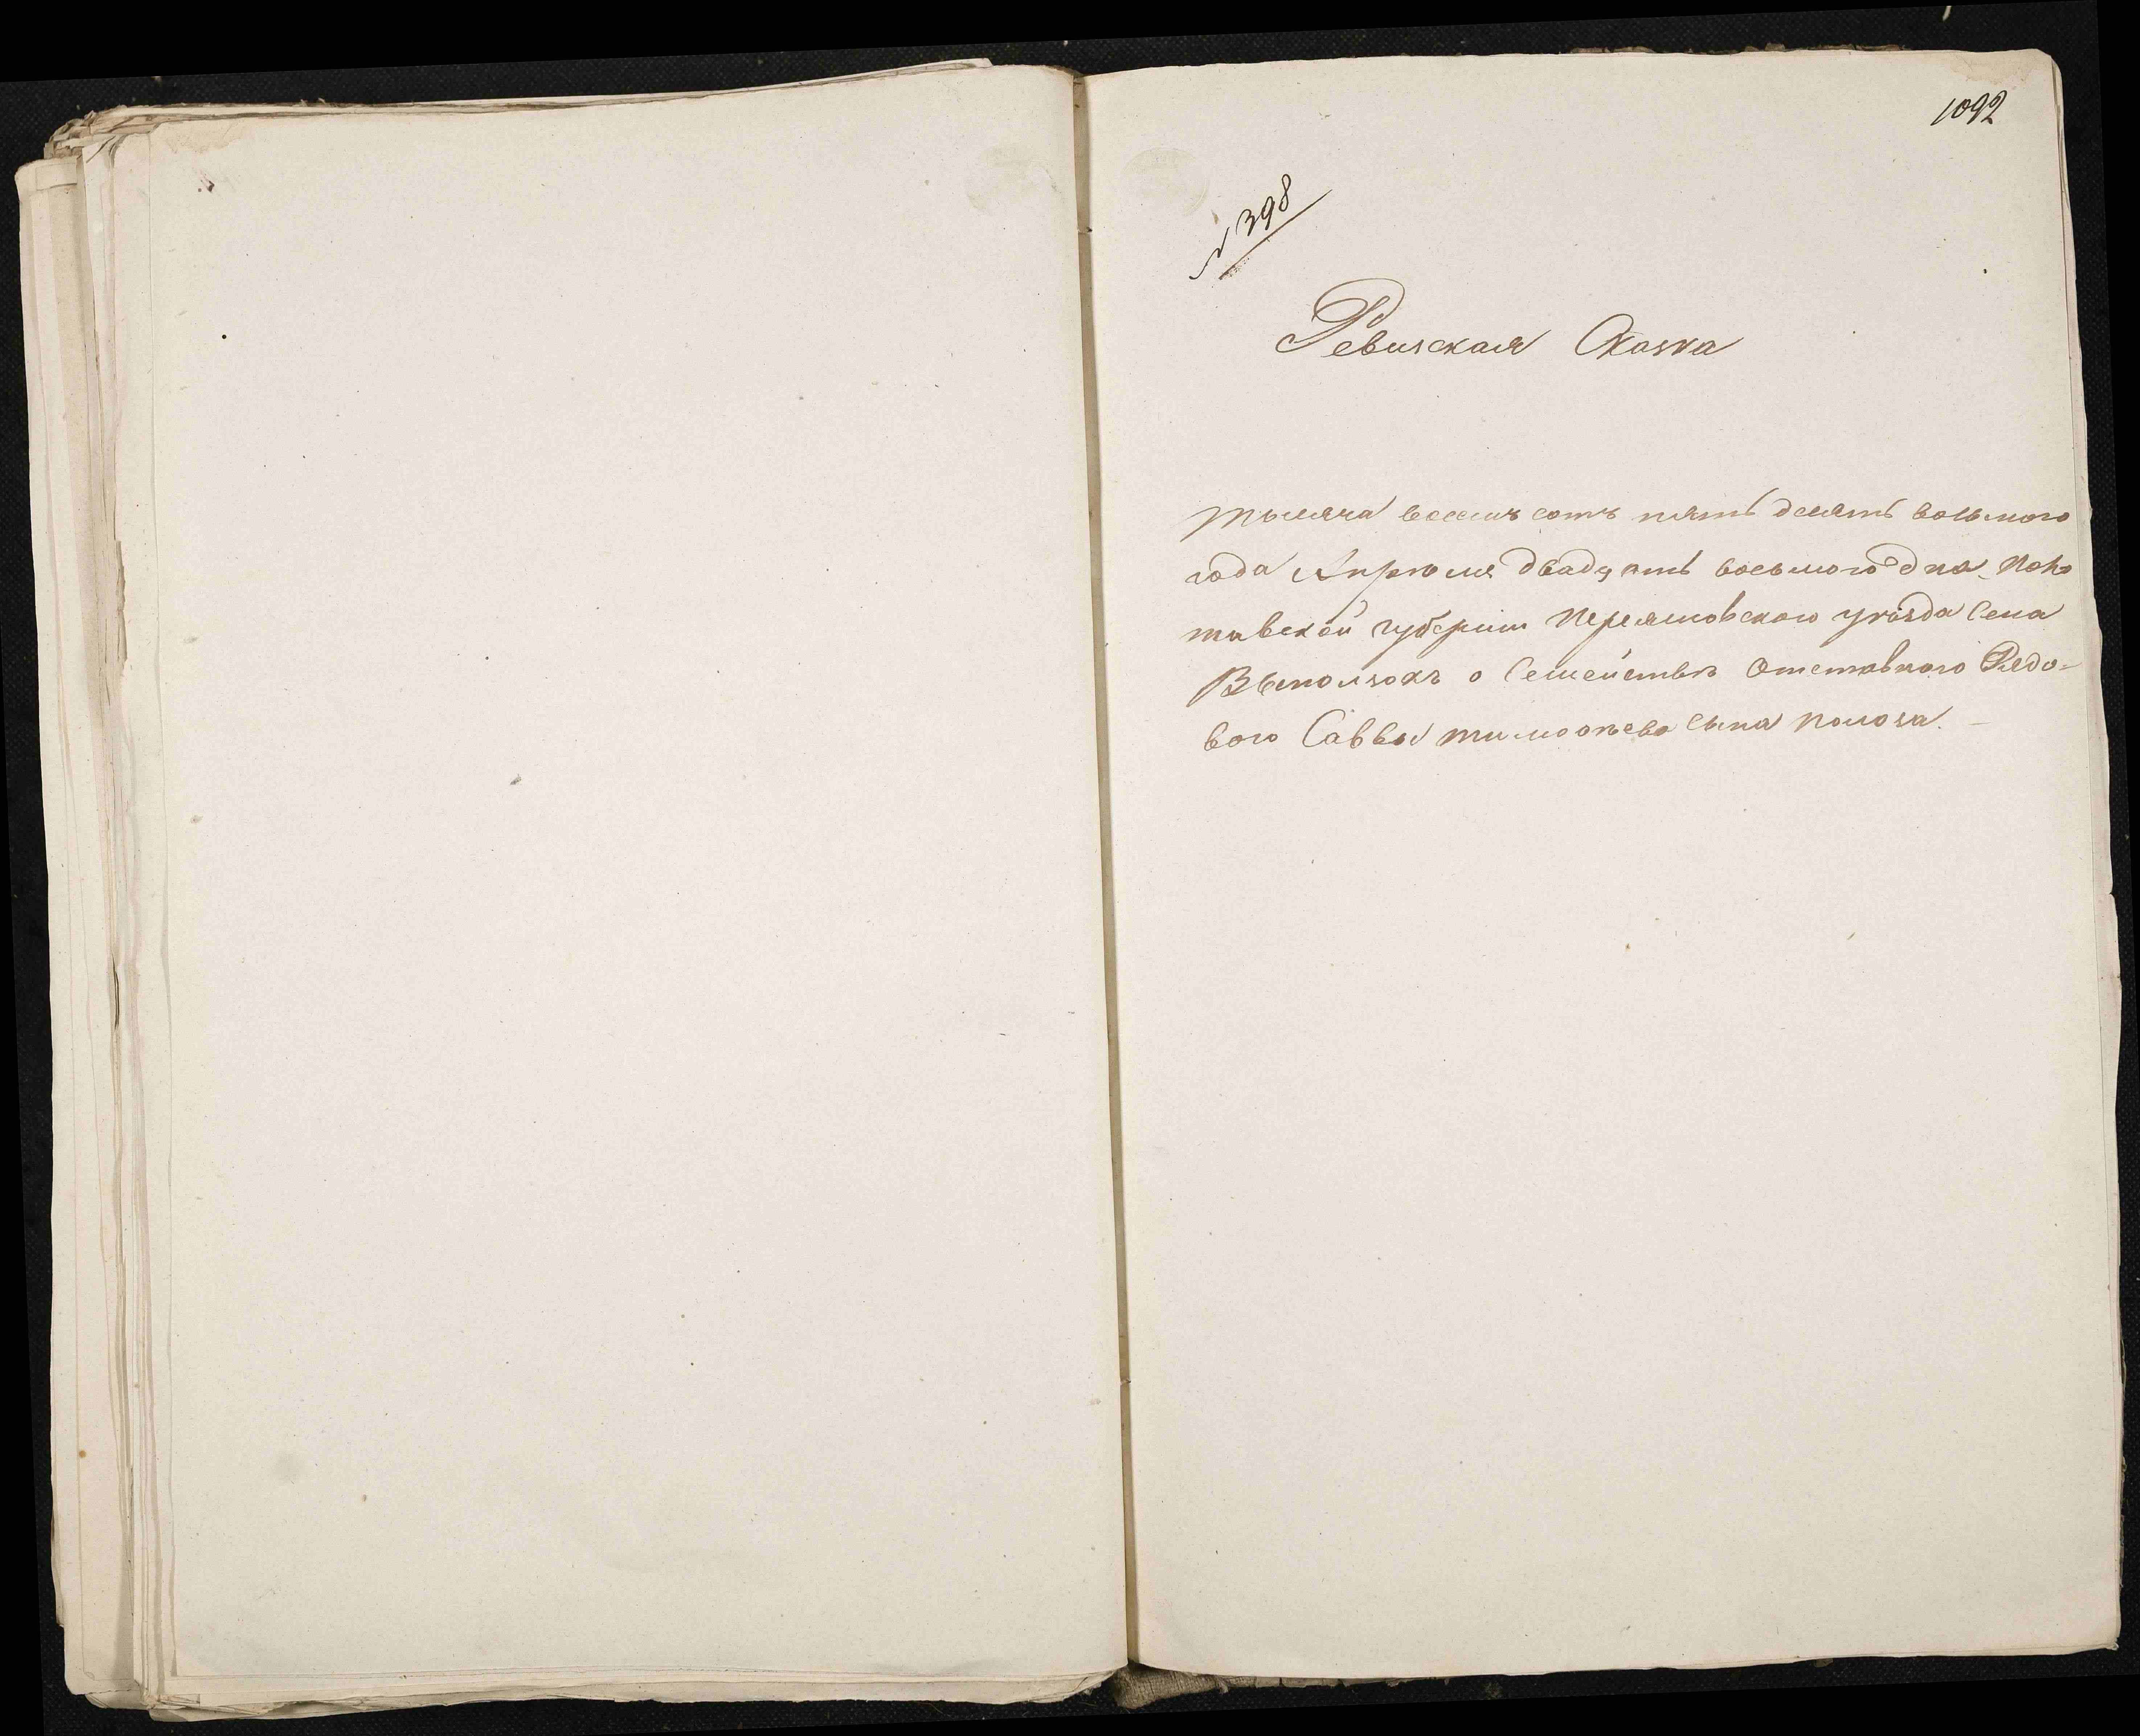 1092
№ 398
Ревизская Сказка
тысяча восемь сотъ пять десять восьмого
года Апреля двадцать восьмого дня, Пол-
тавской губернии Переясловского уѣзда Села
Выползокъ о Семействѣ Отставного Редо-
вого Саввы тимофѣева сына Полоза. –